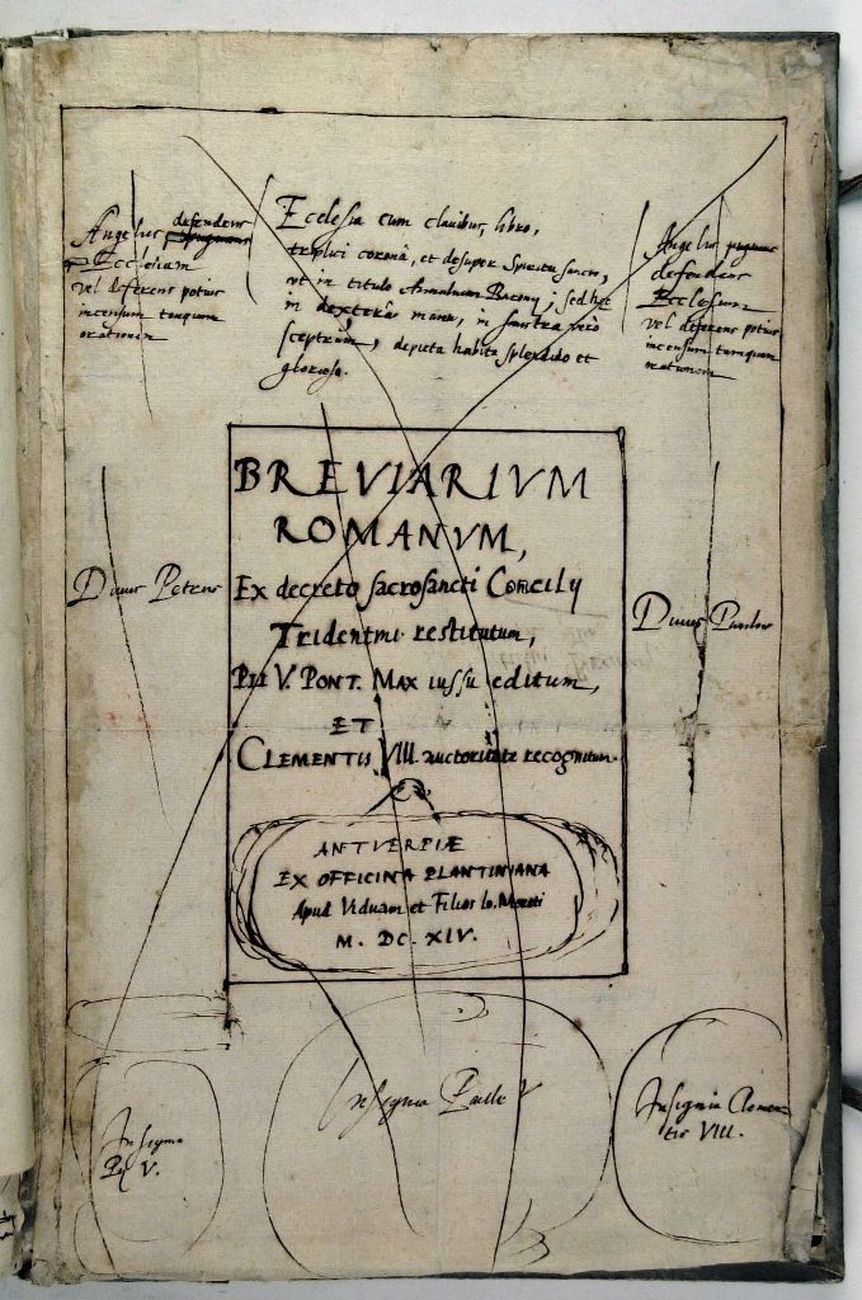 Angelus defendens
Ecclesiam
vel deferens potius
incensum tanquam
orationem
Ecclesia cum clavibus, libro,
triplici coronâ, et desuper Spiritu sancto,
ut in titulo Annalium Baronij; sed het
in dexterâ manu, in sinistra verò
sceptrum, depicta habitu splendido et
glorioso.
Angelus
defendens
Ecclesiam
vel deferens potius
incensum tamquam
orationem
BREVIARIVM
ROMANVM,
Ex decreto sacrosancti Concilij
Tridentini restitutum,
PII V. PONT. MAX iussu editum,
ET
CLEMENTIS VIII. auctoritate recognitum.
Divus Petrus
Divus Paulus
ANTVERPIÆ
EX OFFICINA PLANTINIANA
Apud Viduam et Filios Io. Moreti
M. DC. XIV.
Insignia
Pij V.
Insignia Pauli V
Insignia Clemen
tis VIII.